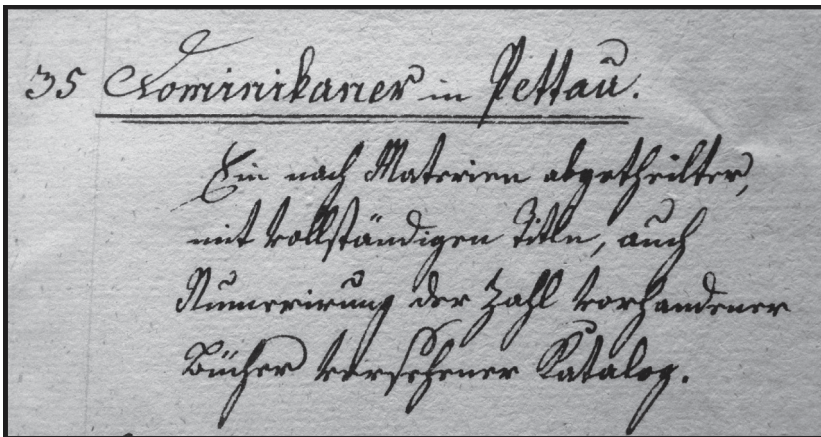 35 Dominikaner in Pettau.
Ein nach Materien abgetheilter,
mit vollständigen Titln, auch
Numerirung der Zahl vorhandener
Bücher versehener Katalog.